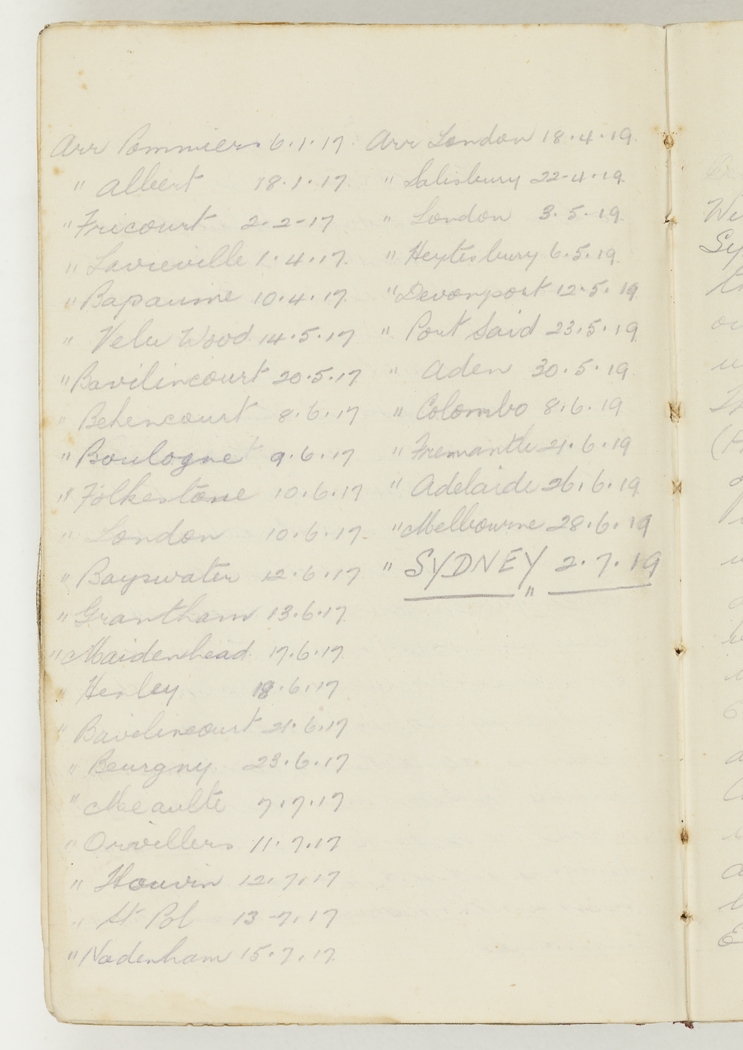 Arr Pommiers 6.1.17.
" Albert 18.1.17.
" Fricourt 2-2-17
" Lavieville 1.4.17.
" Bapaume 10.4.17.
" Velu Wood 14.5.17
" Bavilincourt 20.5.17
" Behencourt 8.6.17
" Boulogne 9.6.17
" Folkestone 10.6.17
" London 10.6.17.
" Bayswater 12.6.17
" Grantham 13.6.17.
" Maidenhead 17.6.17.
" Henley 18.6.17
" Bavelincourt 21.6.17
" Beurgny 23.6.17
" Meaulte 7.7.17
" Orvillers 11.7.17
" Houvin 12.7.17
" St Pol 13-7.17
" Nadenham 15.7.17
Arr London 18.4.19.
" Salisbury 22-4.19.
" London 3.5-19.
" Heytesbury 6.5.19.
" Devonport 12.5.19
" Port Said 23.5.19
" Aden 30.5.19
" Colombo 8.6.19
" Fremantle 21.6.19
" Adelaide 26.6.19
" Melbourne 28.6.19
" SYDNEY 2.7.19
"